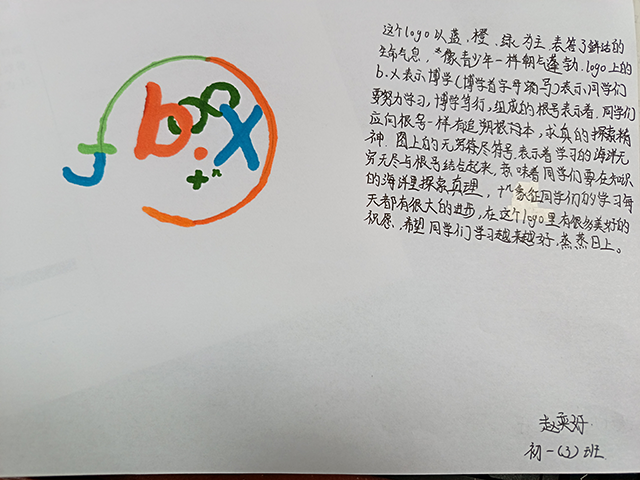 b.x
+n
这个logo以蓝、橙、绿为主,表答了鲜活的
生命气息,像青少年一样朝气蓬勃。logo上的
b.x表示博学(博学首字母缩写)表示同学们
要努力学习,博学笃行,组成的根号表示着,同学们
应向根号一样有追朔根的本,求真的探索精
神。图上的无穷符尽符号,表示着学习的海洋无
穷无尽与根号结合起来,意味着同学们要在知识
的海洋里探索真理,+n象征同学们的学习每
天都有很大的进步,在这个logo里有很多美好的
祝愿,希望同学们学习越来越好,蒸蒸日上。
赵奕好
初一(3)班